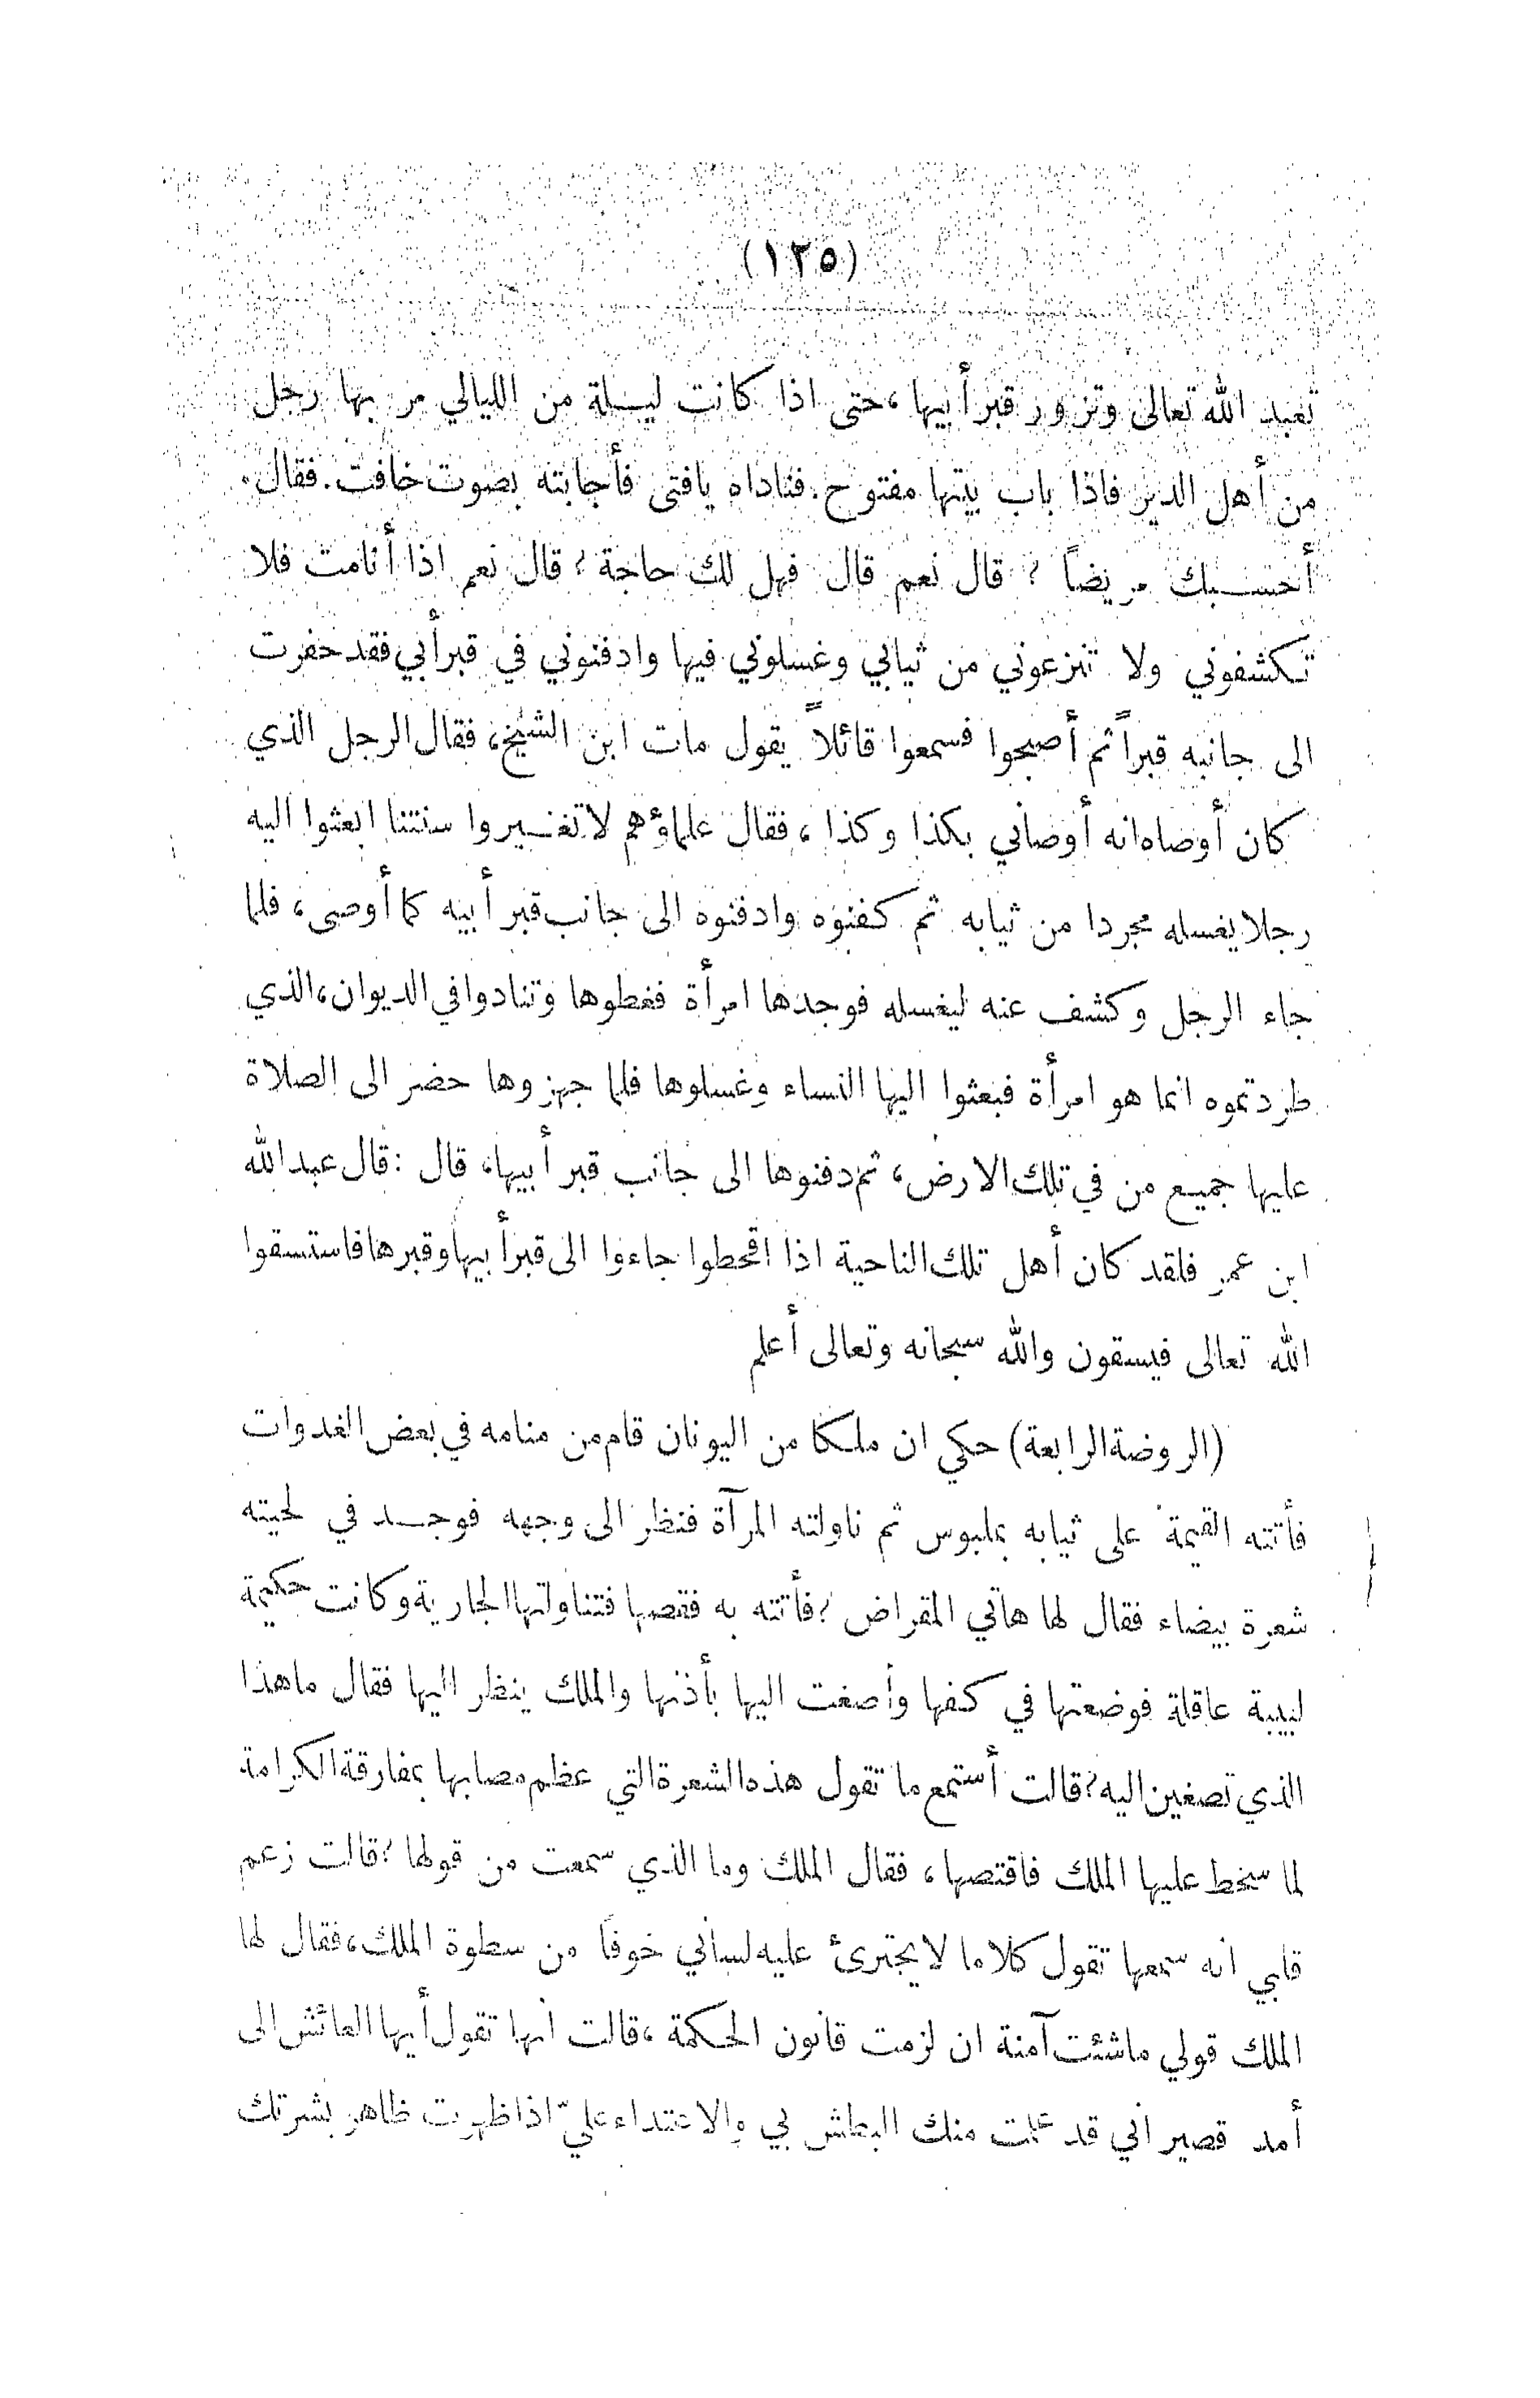 (١٢٥)
تعبد الله تعالى وتزور قبر أبيها ، حتى اذا كانت ليلة من الليالي مر بها رجل
من أهل الدير فاذا باب بيتها مفتوح . فناداه يافتى فأجابته بصوت خافت . فقال
أحسبك مريضاً ؟ قال نعم قال فهل لك حاجة ؟ قال نعم اذا أنامت فلا
تكشفوني ولا تنزعوني من ثيابي وغسلوني فيها وادفنوني في قبر أبي فقد حفرت
الى جانبه قبراً ثم أصبحوا فسمعوا قائلاً يقول مات ابن الشيخ ، فقال الرجل الذي
كان أوصاه انه أوصاني بكذا وكذا ، فقال علماؤهم لا تغيروا سنتنا ابعثوا اليه
رجلا يغسله مجردا من ثيابه ثم كفنوه وادفنوه الى جانب قبر أبيه كما أوصى ، فلما
جاء الرجل وكشف عنه ليغسله فوجدها امرأة فغطوها وتنادوا في الديوان ، الذي
طردتموه انما هو امرأة فبعثوا اليها النساء وغسلوها فلما جهزوها حضر الى الصلاة
عليها جميع من في تلك الارض ، ثم دفنوها الى جانب قبر أبيها ، قال : قال عبد الله
ابن عمر فلقد كان أهل تلك الناحية اذا اقحطوا جاءوا الى قبر أبيها وقبرها فاستسقوا
الله تعالى فيسقون والله سبحانه وتعالى أعلم
(الروضة الرابعة) حكي ان ملكا من اليونان قام من منامه في بعض الغدوات
فأتته القيمة على ثيابه بملبوس ثم ناولته المرآة فنظر الى وجهه فوجد في لحيته
شعرة بيضاء فقال لها هاتي المقراض ؟ فأتته به فقصها فتناولتها الجارية وكانت حكيمة
لبيبة عاقلة فوضعتها في كفها وأصغت اليها بأذنها والملك ينظر اليها فقال ماهذا
الذي تصغين اليه ؟ قالت أستمع ما تقول هذه الشعرة التي عظم مصابها بمفارقة الكرامة
لما سخط عليها الملك فاقتصها ، فقال الملك وما الذي سمعت من قولها ؟ قالت زعم
قلبي انه سمعها تقول كلاما لا يجترئ عليه لساني خوفا من سطوة الملك ، فقال لها
الملك قولي ماشئت آمنة ان لزمت قانون الحكمة ، قالت انها تقول أيها العائش الى
أمد قصير اني قد علمت منك البطش بي والاعتداء عليّ اذا ظهرت ظاهر بشرتك